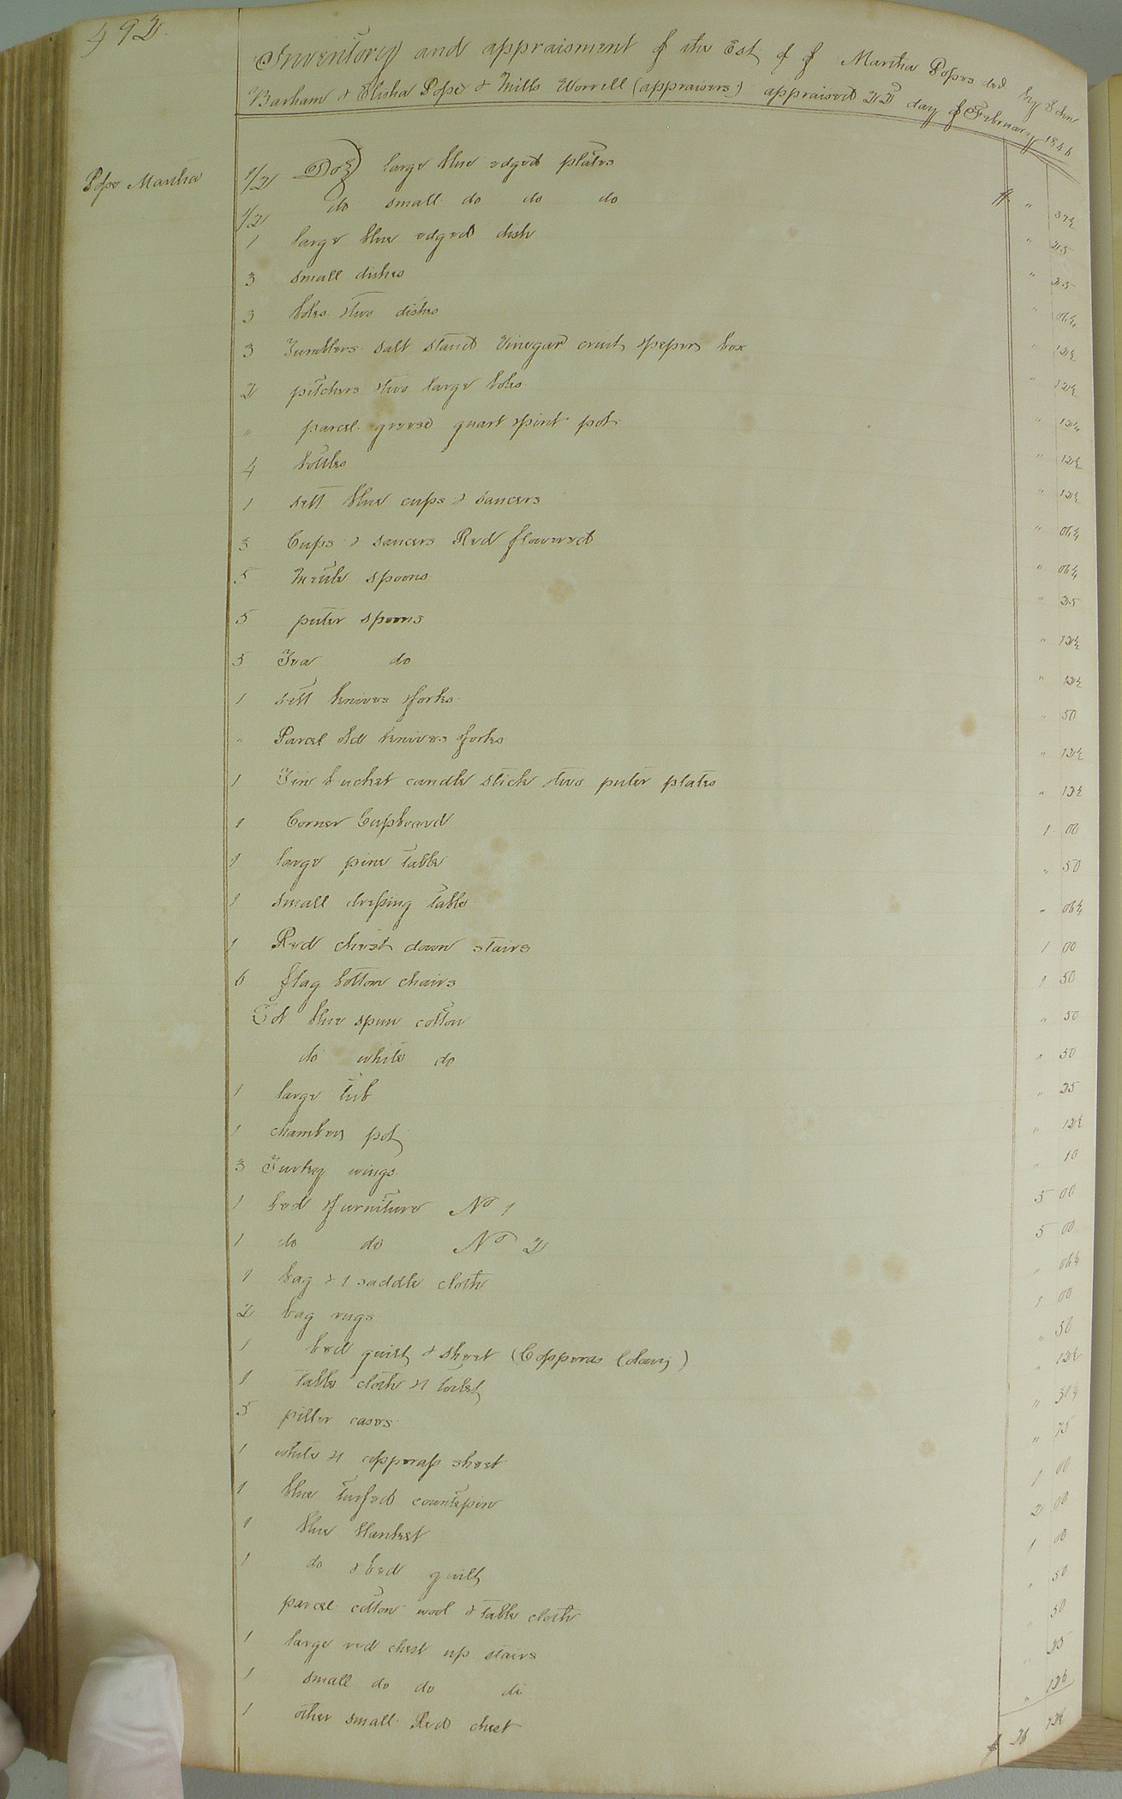 492
Inventory and appraisment of the Est of Martha Popes decd by Eden
Barham & Elisha Pope & Mills Worrell (appraisers) appraised 22 day of February 1846
Pope Martha
1/2 Doz large blue edged plates $ " 37½
1/2 do small do do do " 25
1 large blue edged dish " 25
3 small dishes " 06¼
3 boles & two dishes " 12½
3 Tumblers salt stand Vinegar cruit & peper box " 12½
2 pitchers & two large boles " 12½
" parcel quart & pint pot " 12½
4 bottles " 12½
1 sett blue cups & saucers " 06¼
3 Cups & saucers Red flowered " 06¼
5 Mettle spoons " 25
5 puter spoons " 12½
5 Tea do " 12½
1 sett knives & forks " 50
" Parcel old knives & forks " 12½
1 Tin bucket candle stick & two puter plates " 12½
1 Corner Cupboard 1 00
1 large pine table " 50
1 small dressing table " 06¼
1 Red chest down stairs 1 00
6 flag bottom chairs 1 50
Lot blue spun cotton " 50
do white do " 50
1 large tub " 25
1 chamber pot " 12½
3 Turkey wings " 10
1 bed & furniture No 1 5 00
1 do do No 2 5 00
1 bag & 1 saddle cloth " 06¼
2 bag rugs 1 00
1 bed quilt & sheet (Copperas " 50
1 table cloth & 1 toilet " 12½
5 piller cases " 31¼
1 white & 1 copperass sheet " 75
1 blue tufted countepin 1 00
1 blue blanket 2 00
1 do & bed quilt 1 00
parcel cotton wool & table cloth " 50
1 large red chest up stairs " 50
1 small do do do " 25
1 other small Red chest " 12½
$ 26 72½